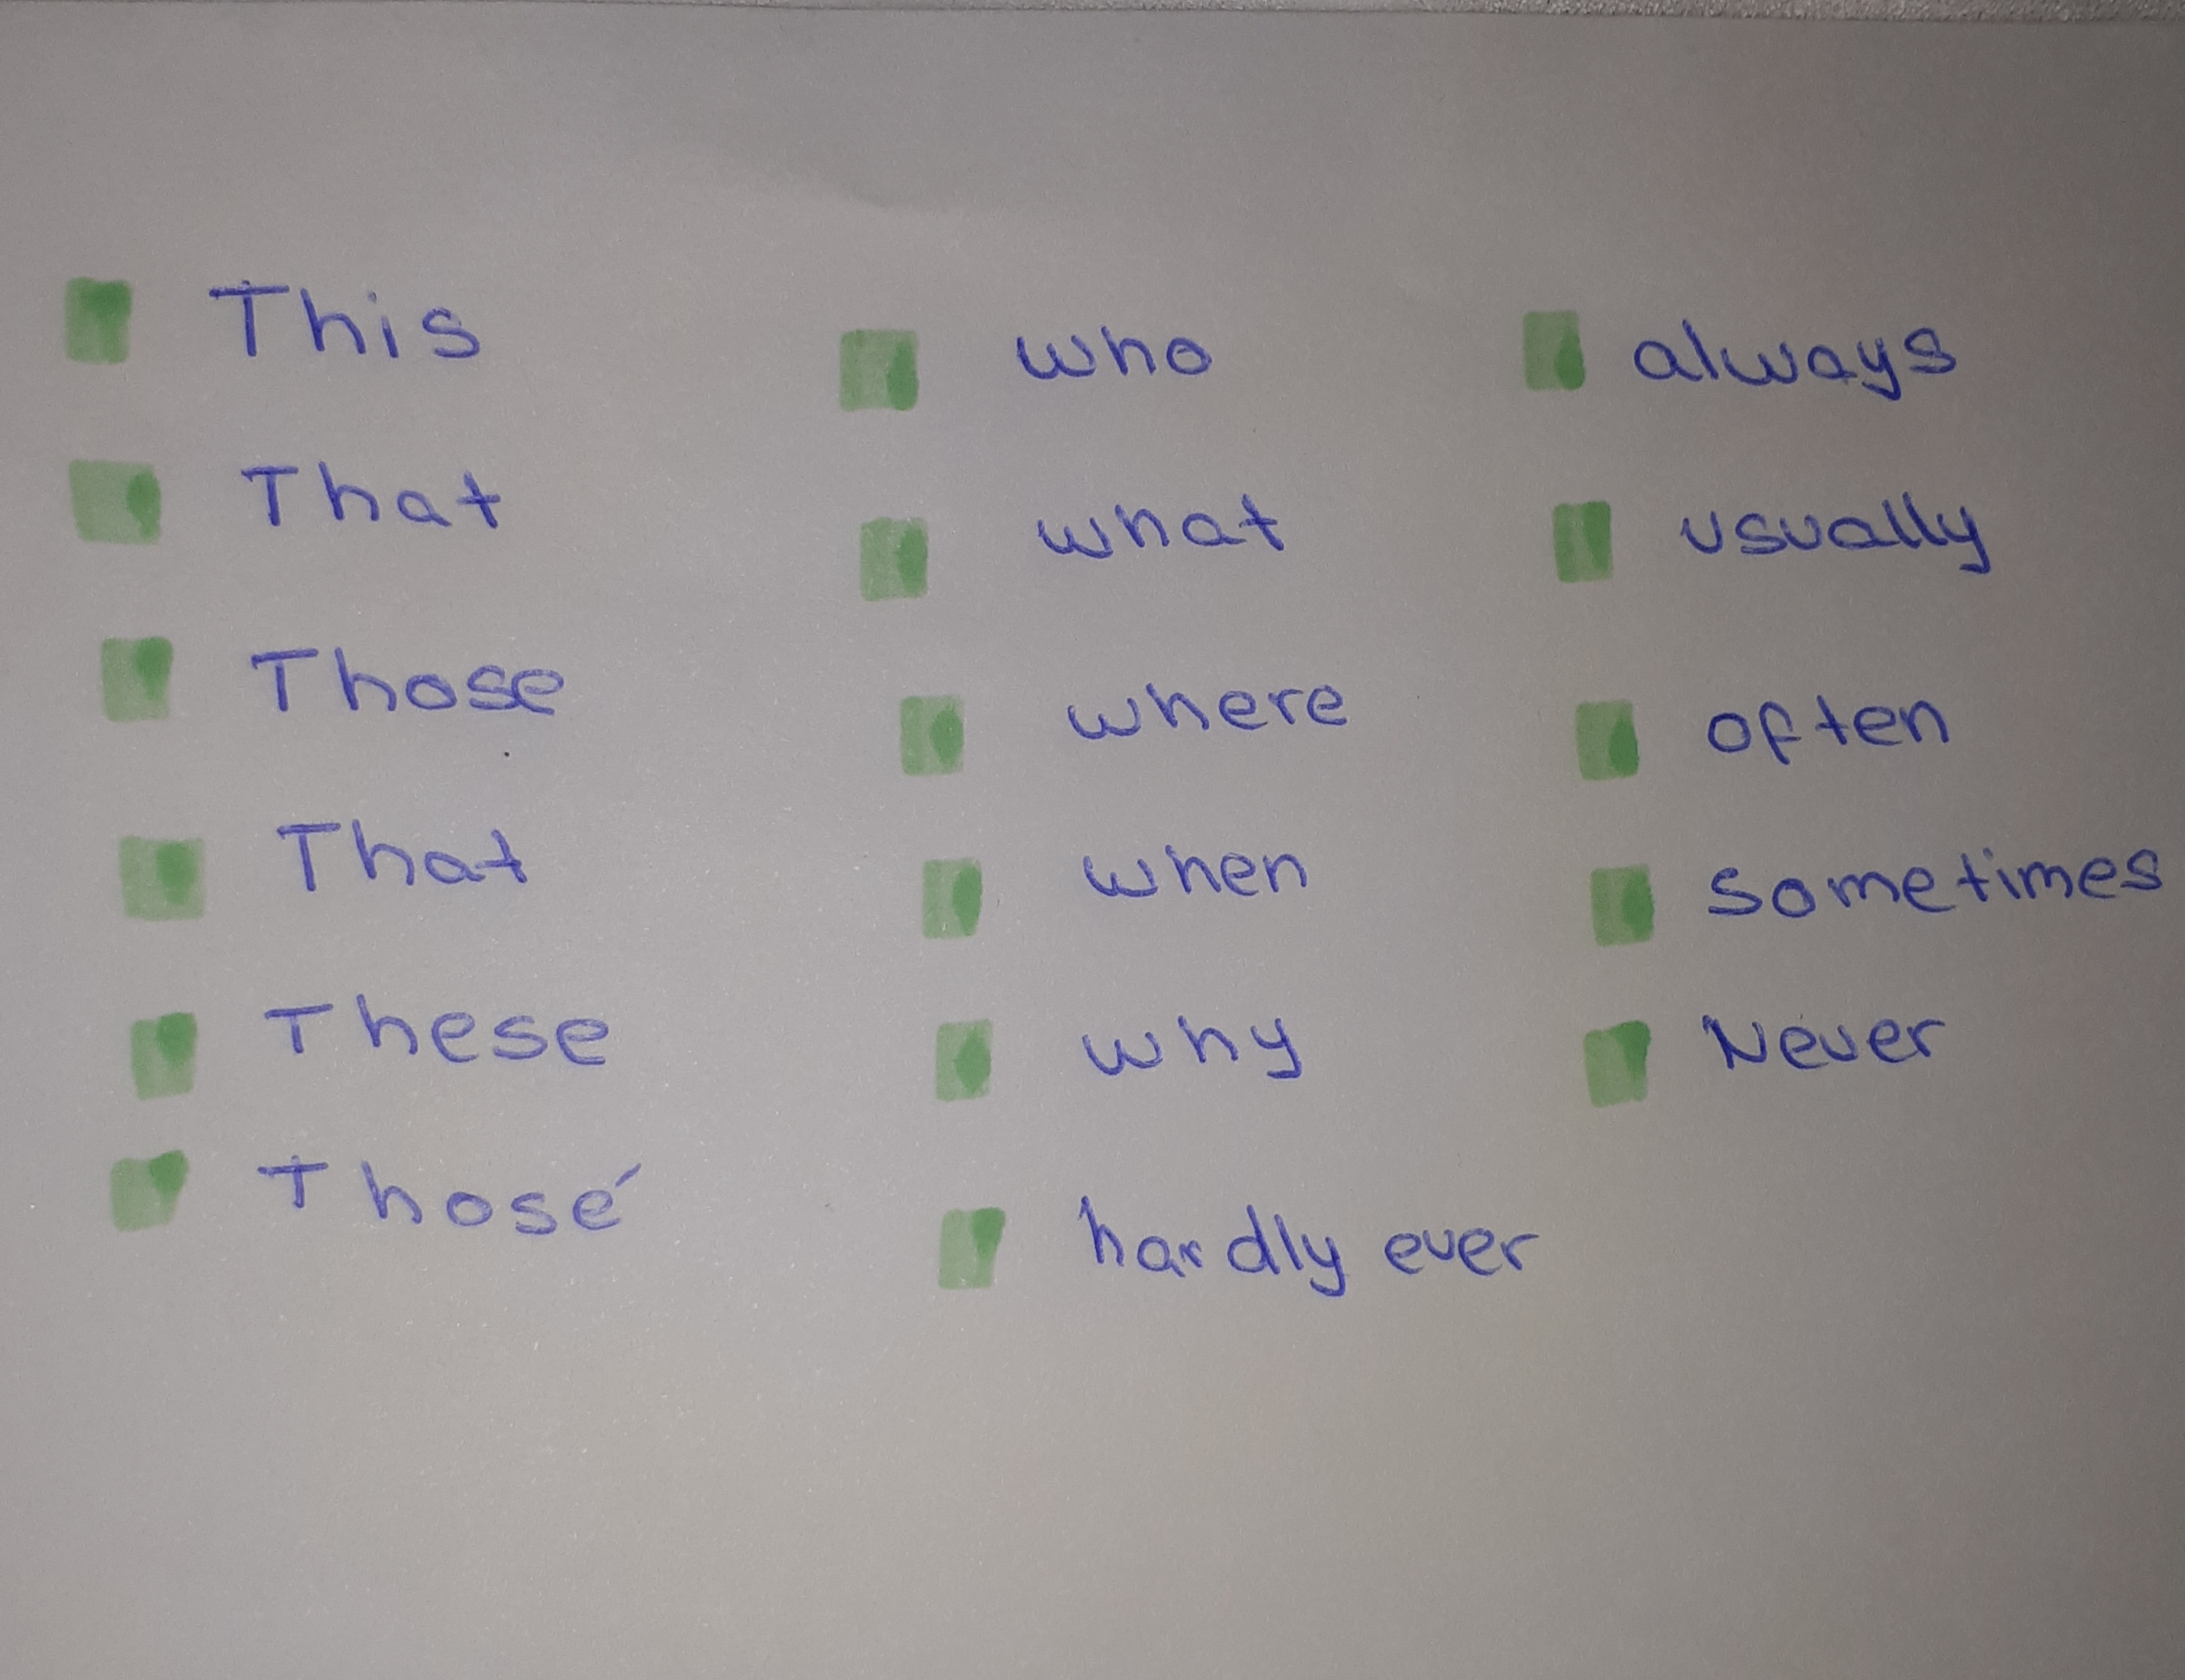 This
That
Those
That
These
Thosé
who
what
where
when
why
hardly ever
always
usually
often
sometimes
Never